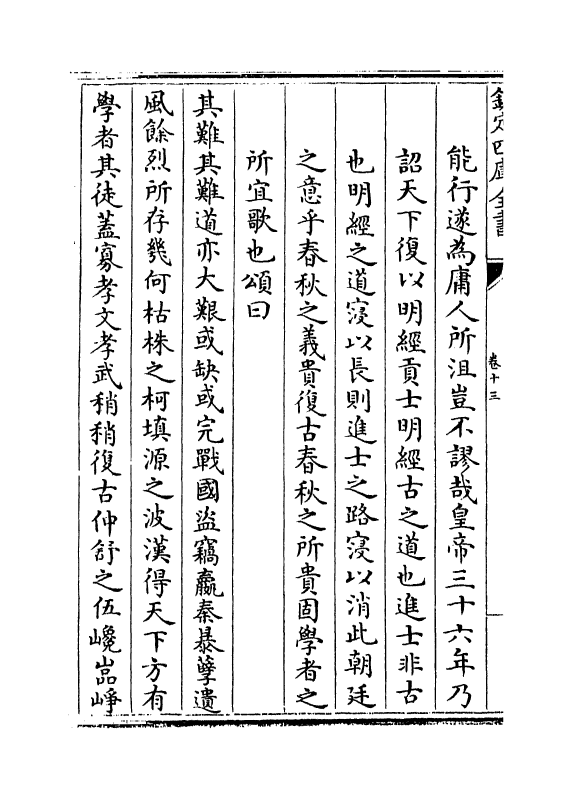 欽定四庫全書
卷十三
能行遂為庸人所沮豈不謬哉皇帝三十六年乃
詔天下復以明經貢士明經古之道也進士非古
也明經之道寖以長則進士之路寖以消此朝廷
之意乎春秋之義貴復古春秋之所貴固學者之
所宜歌也頌曰
其難其難道亦大艱或缺或完戰國盜竊嬴秦暴孽遺
風餘烈所存幾何枯株之柯填源之波漢得天下方有
學者其徒蓋寡孝文孝武稍稍復古仲舒之伍巉嵓崢